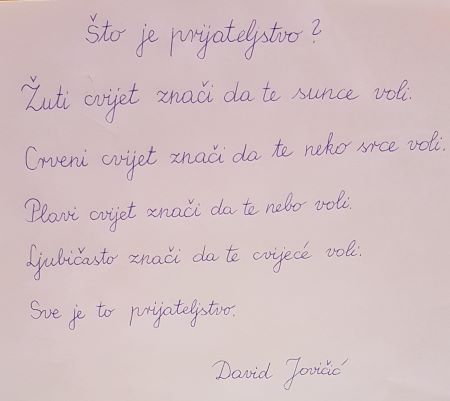 Što je prijateljstvo?
Žuti cvijet znači da te sunce voli.
Crveni cvijet znači da te neko srce voli.
Plavi cvijet znači da te nebo voli.
Ljubičasto znači da te cvijeće voli.
Sve je to prijateljstvo.
David Jovičić